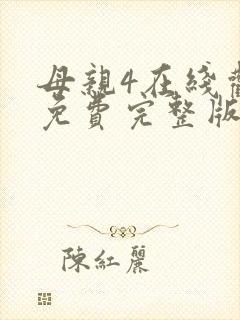 母親4在綫
免費完整版
陳紅麗